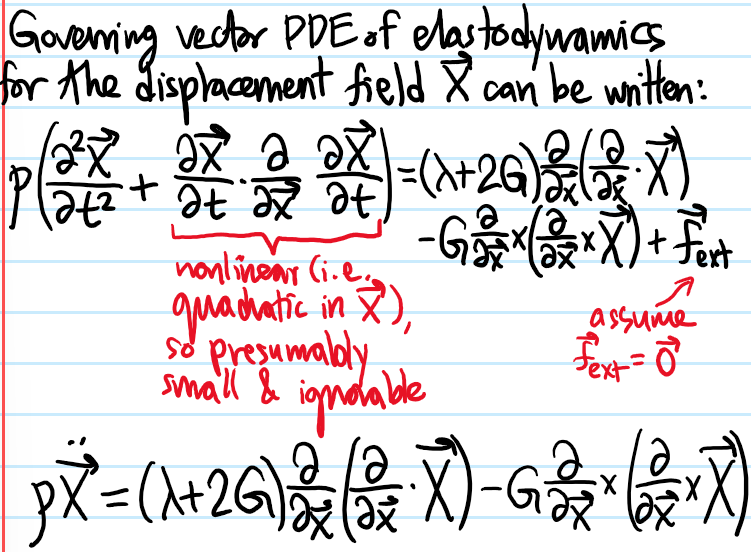 Governing vector PDE of elastodynamics
for the displacement field X⃗ can be written:
ρ(∂²X⃗/∂t² + ∂X⃗/∂t · ∂/∂x⃗ ∂X⃗/∂t) = (λ+2G) ∂/∂x⃗ (∂/∂x⃗ · X⃗)
- G ∂/∂x⃗ × (∂/∂x⃗ × X⃗) + f⃗ext
nonlinear (i.e.
quadratic in X⃗),
so presumably
small & ignorable
assume
f⃗ext = 0⃗
ρẌ⃗ = (λ+2G) ∂/∂x⃗ (∂/∂x⃗ · X⃗) - G ∂/∂x⃗ × (∂/∂x⃗ × X⃗)